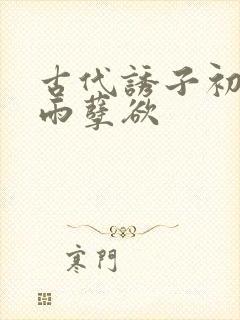 古代誘子初
雨孽欲
寒門